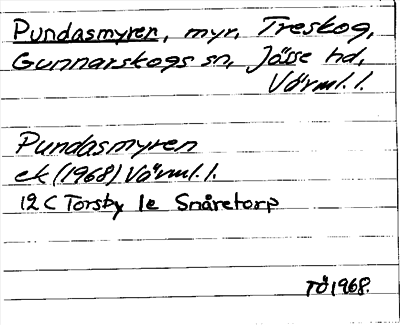 Pundasmyren, myr, Treskog,
Gunnarskogs sn, Jösse hd,
Värml. l.
Pundasmyren
ek (1968) Värml. l.
12 C Torsby 1e Snåretorp
TÖ 1968.